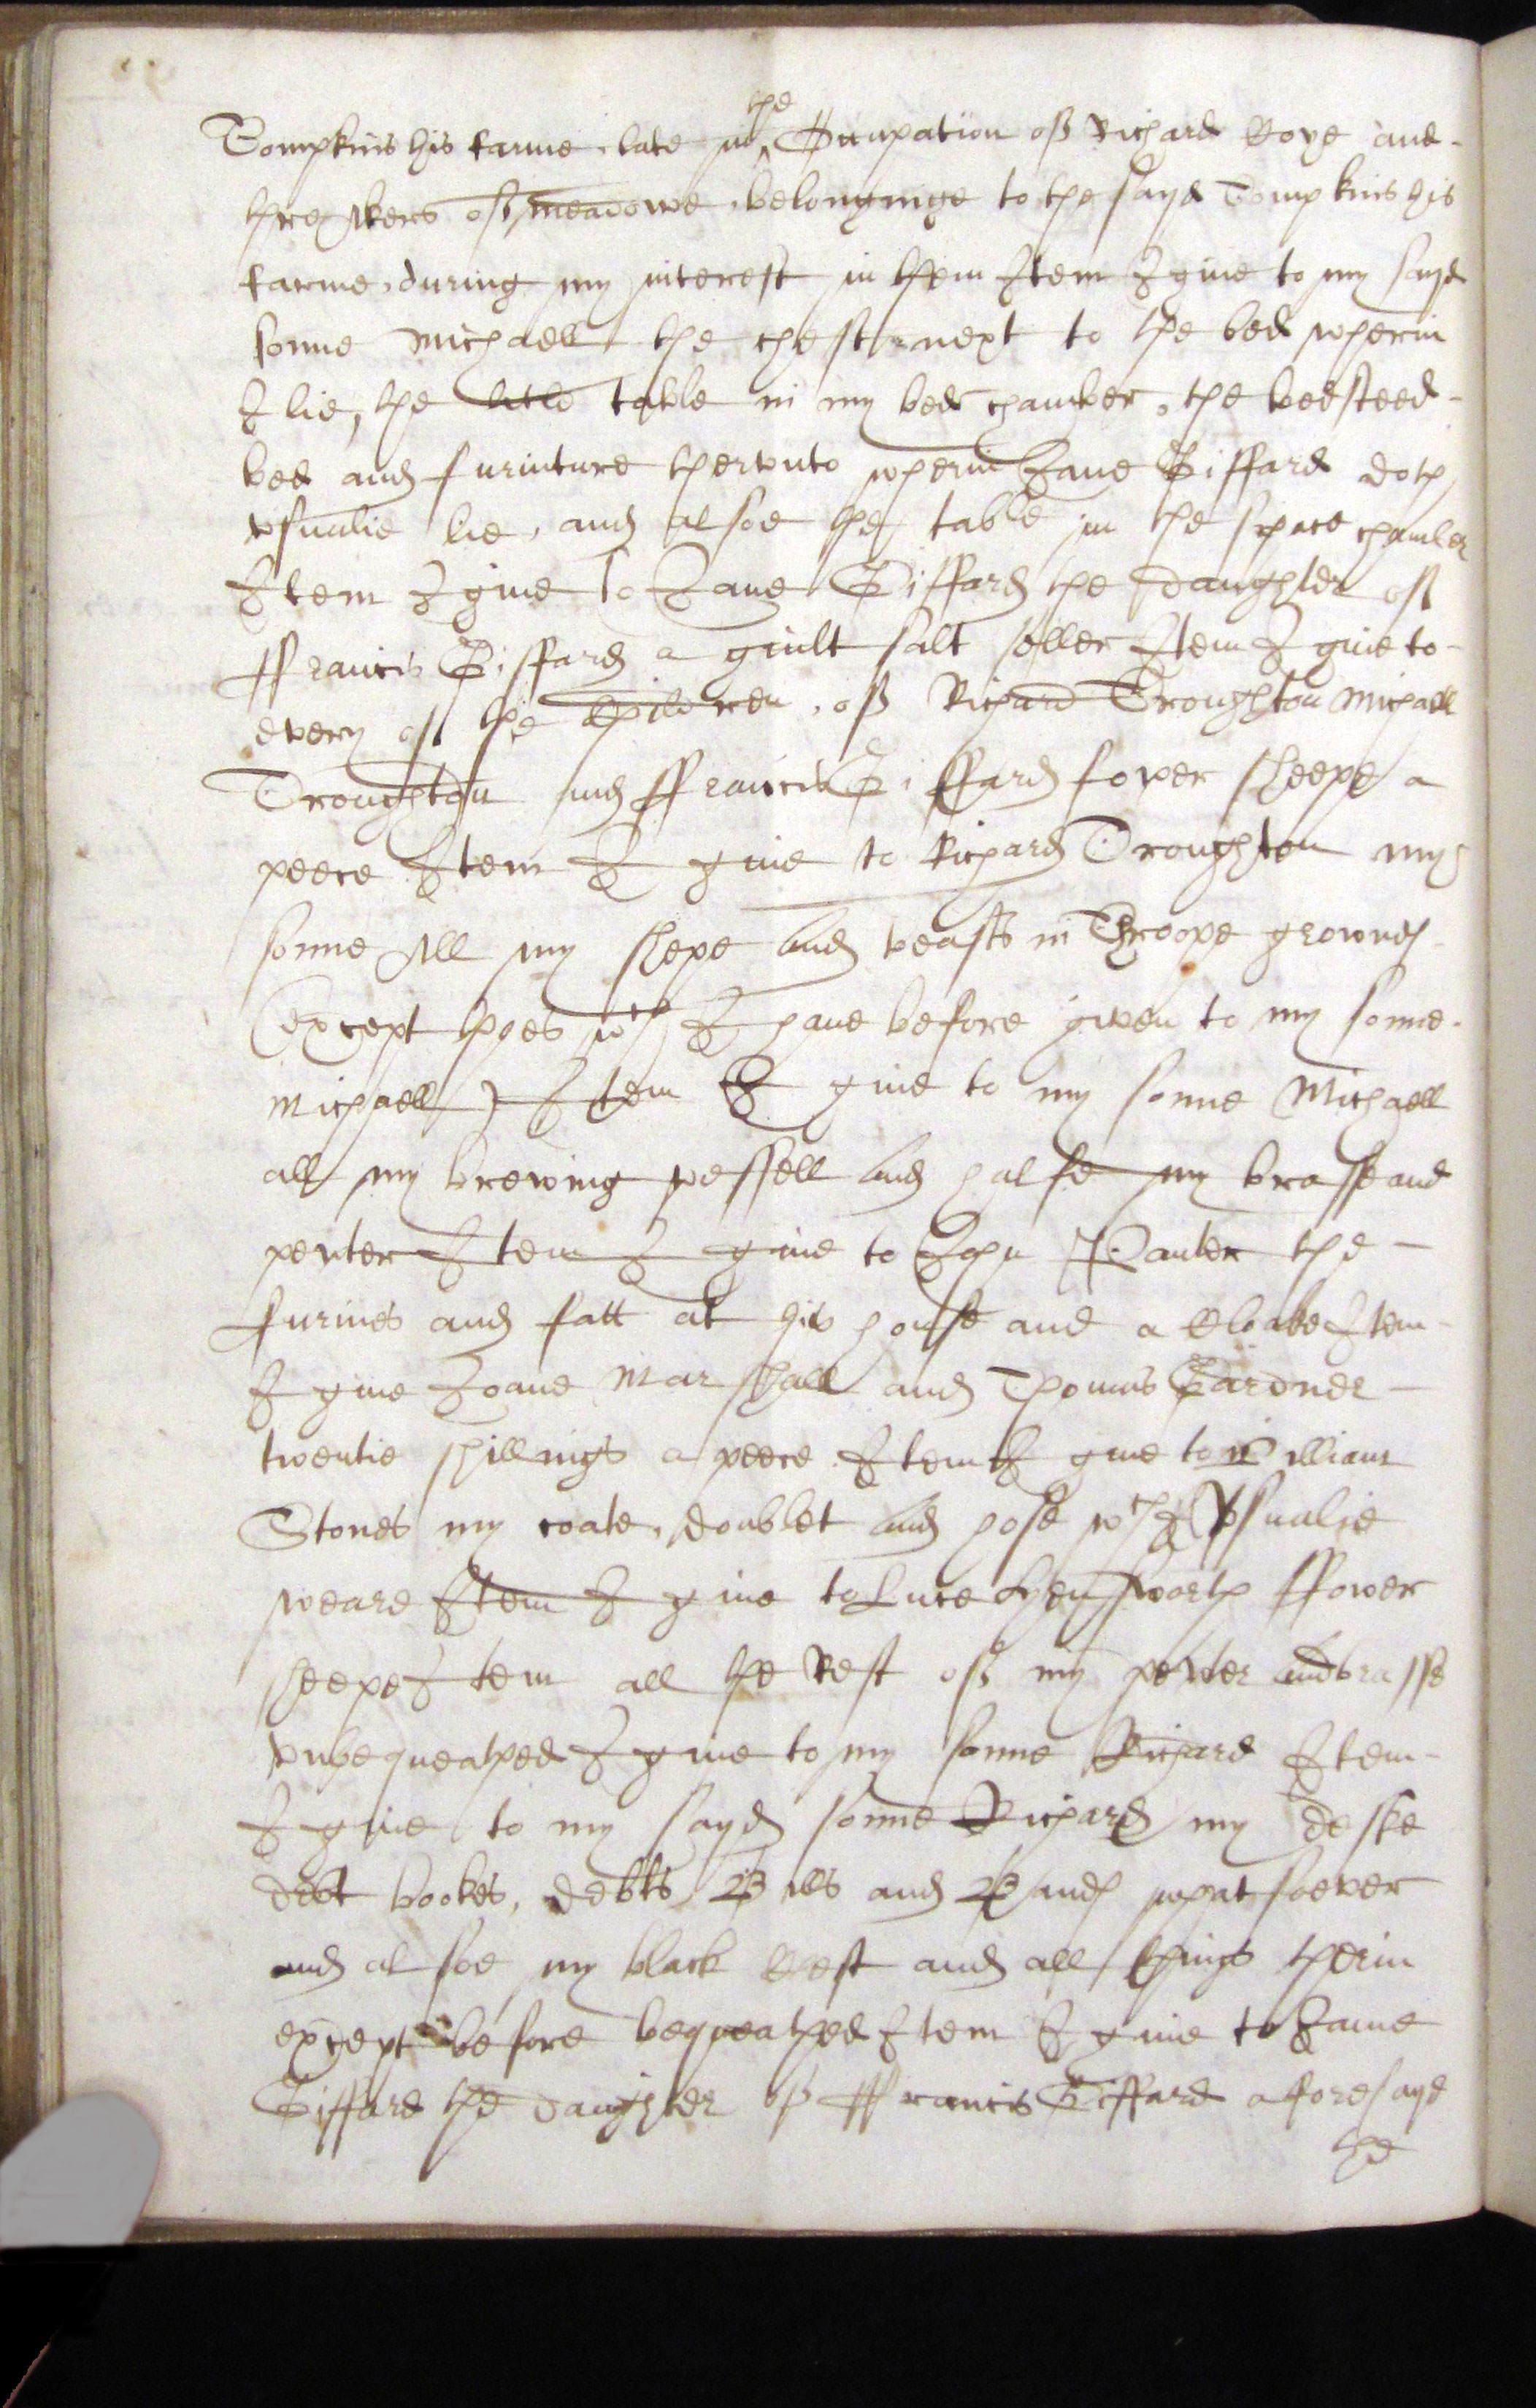 the
Tompkins his farme late in ^ Occupation of Richard Roye and
thre Akers of meadowe belonginge to the sayd Tompkins his
farme during my interest in them Item I give to my sayd
sonne Michaell the chest next to the bed wherin
I lie, the litle table in my bed chamber, the bedsteed
bed and furniture thervnto wherin Jane Giffard doth
vsualie lie, and alsoe the table in the spare chamber
Item I give to Jane Giffard the daughter of
ffrancis Giffard a guilt salt seller Item I give to
every of the Children of Richard Troughton Michaell
Troughton and ffrancis Giffard fower sheepe a
peece Item I give to Richard Troughton my
sonne All my shepe and beasts in Throope grownds
(except thoes wch I have before given to my sonne
Michaell) Item I give to my sonne Michaell
all my brewing vessell and halfe my brasse and
pewter Item I give to John the
furnes and fatt at his house and a Cloake Item
I give Joane Marshall and Thomas Gardner
twentie shillings a peece Item I give to William
Stones my coate, doublet and hose wch I Vsualie
weare Item I give to Luce ffower
sheepe Item all the Rest of my pewter and brasse
vnbequeathed I give to my sonne Richard Item
I give to my sayd sonne Richard my deske
debt bookes, debts Bills and Bands whatsoever
and alsoe my black Chest and all things therin
except before bequeathed Item I give to Jane
Giffard the daughter of ffrancis Giffard aforesayd
the